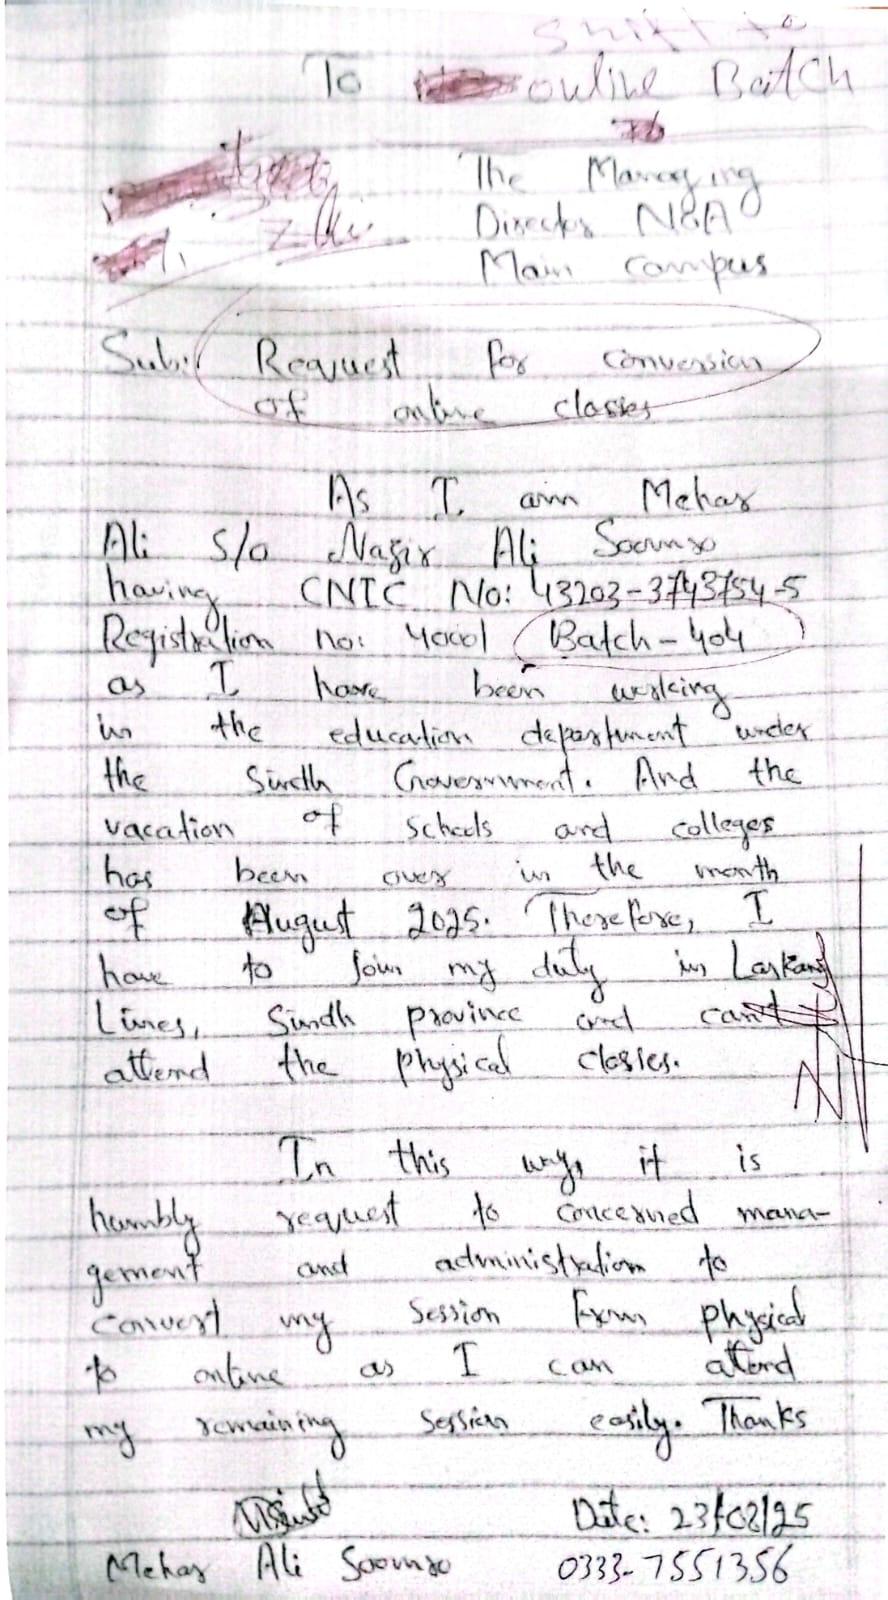 shift to
To online Batch
The Managing
Director NOA
Main campus
Sub: Request for conversion
of online classes
As I am Mehar
Ali S/o Nazir Ali Soomro
having CNIC No: 43203-3743754-5
Registration no: 40001 Batch-404
as I have been working
in the education department under
the Sindh Government. And the
vacation of schools and colleges
has been over in the month
of August 2025. Therefore, I
have to join my duty in
Lines, Sindh province and can't
attend the physical classes.
In this way, it is
humbly request to concerned mana-
gement and administration to
convert my session from physical
to online as I can attend
my remaining session easily. Thanks
Date: 23/08/25
Mehar Ali Soomro 0333-7551356